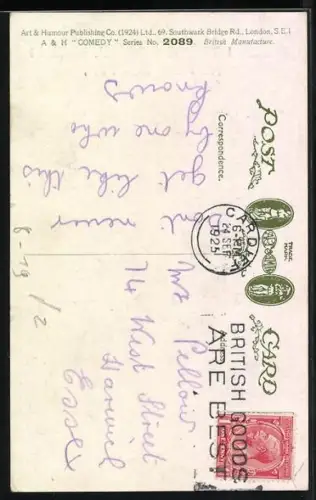 Art & Humour Publishing Co. (1924) Ltd., 69, Southwark Bridge Rd., London, S.E.1
A & H "COMEDY" Series No. 2089. British Manufacture.
POST CARD
TRADE MARK
Correspondence.
Address
CARDIFF
6- PM
24 SEP
1925
BRITISH GOODS
ARE BEST
Dont never
get like this
by one who
knows
Mr Pellow
74 West Street
Harwich
Essex
8-19 /2